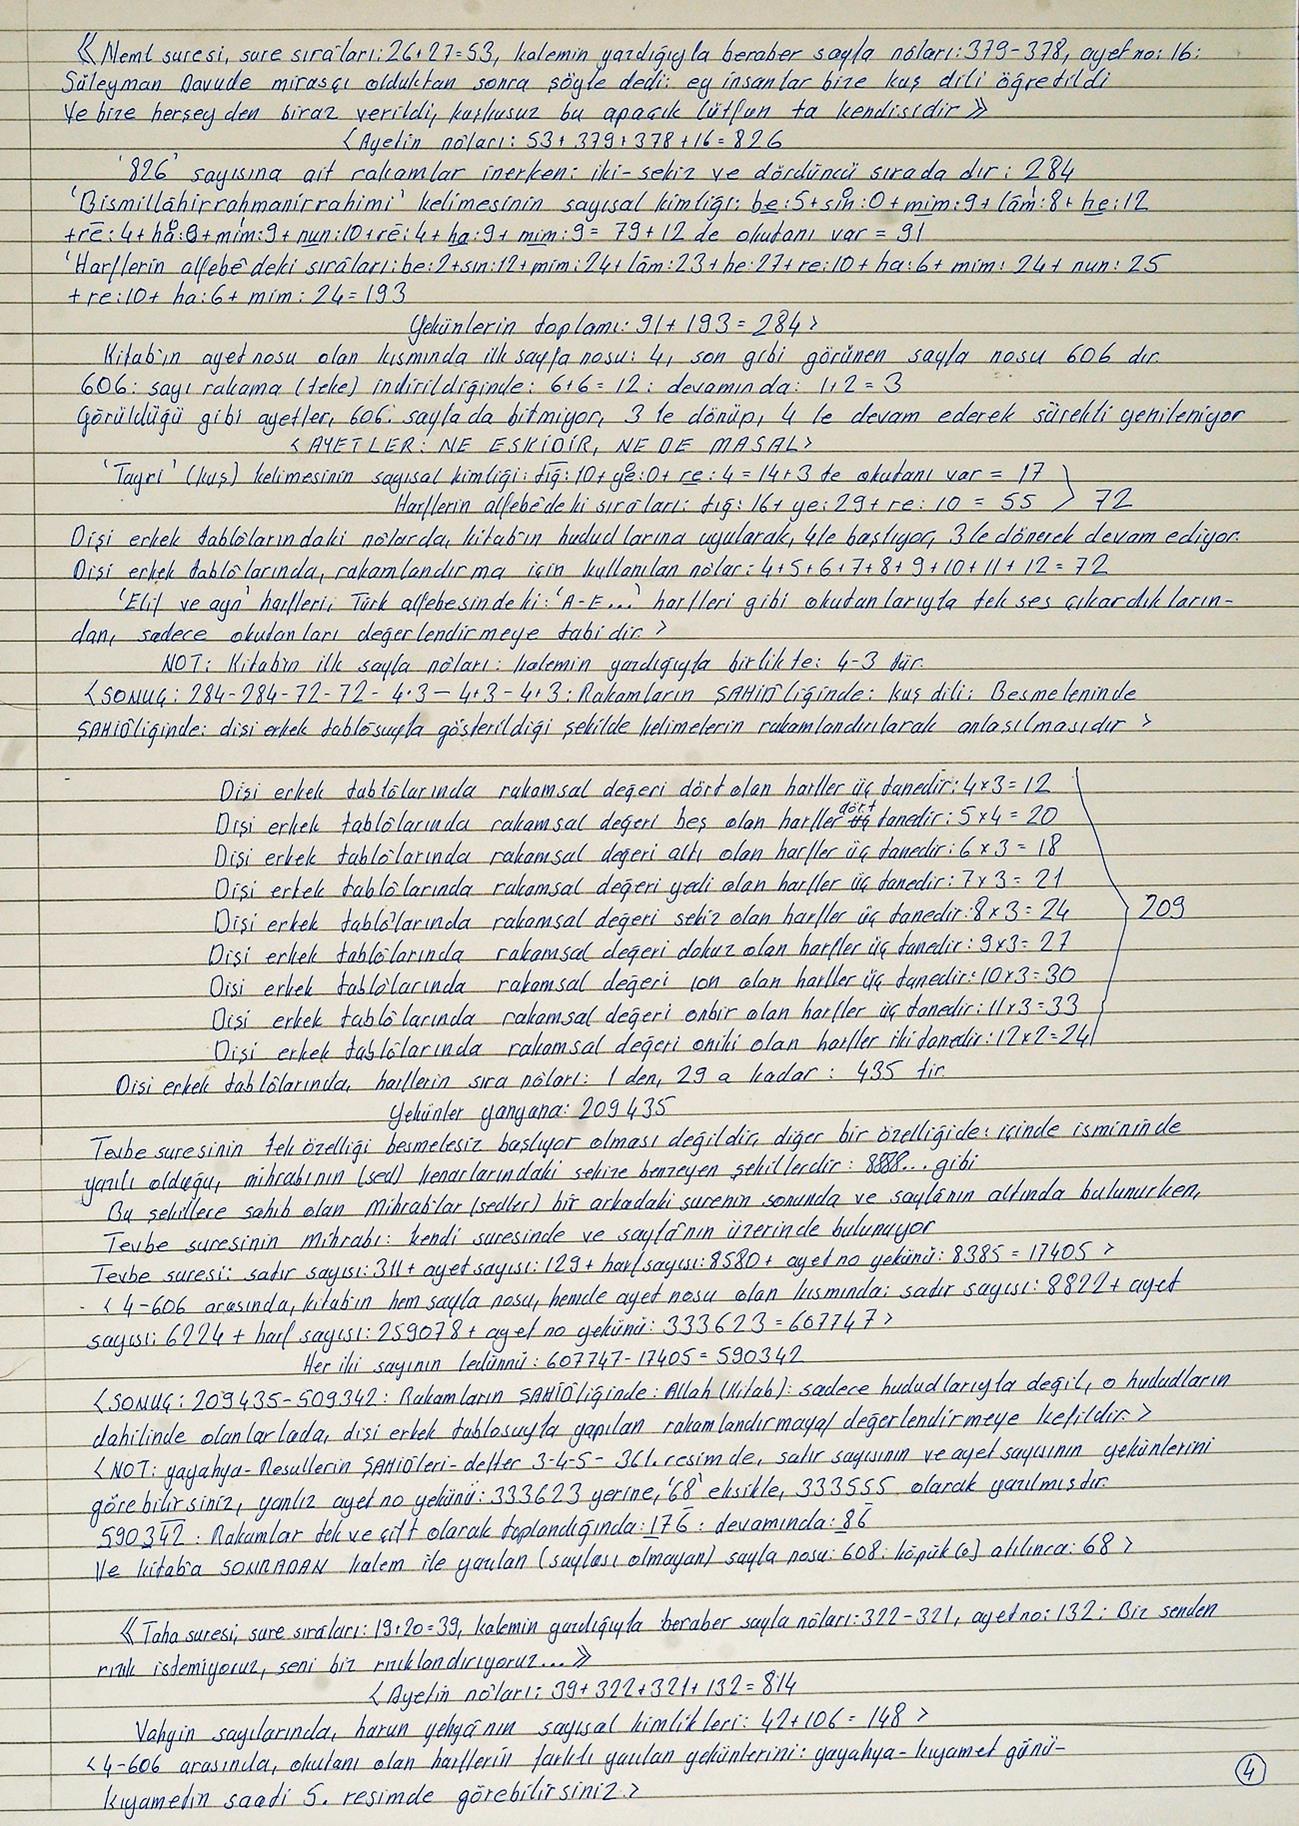 《Neml suresi, sure sıra'ları: 26+27=53, kalemin yazdığıyla beraber sayfa nôları: 379-378, ayet no: 16:
Süleyman Davude mirasçı olduktan sonra şöyle dedi: ey insanlar bize kuş dili öğretildi
Ve bize herşeyden biraz verildi, kuşkusuz bu apaçık lütfun ta kendisidir》
<Ayetin nôları: 53+379+378+16=826
'826' sayısına ait rakamlar inerken: iki-sekiz ve dördüncü sırada dır: 284
'Bismillâhirrahmanirrahimi' kelimesinin sayısal kimliği: be:5+sin:0+mim:9+lâm:8+he:12
+rē:4+hå:0+mim:9+nun:10+rē:4+ha:9+mim:9=79+12 de okutanı var=91
'Harflerin alfebê'deki sırâları: be:2+sın:12+mim:24+lâm:23+he:27+re:10+ha:6+mim:24+nun:25
+re:10+ha:6+mim:24=193
Yekünlerin toplamı: 91+193=284>
Kitab'ın ayet nosu olan kısmında ilk sayfa nosu: 4, son gibi görünen sayfa nosu 606 dır.
606: sayı rakama (teke) indirildiğinde: 6+6=12: devamında: 1+2=3
Görüldüğü gibi ayetler, 606. sayfada bitmiyor, 3 le dönüp, 4 le devam ederek sürekli yenileniyor
<AYETLER: NE ESKİDİR, NE DE MASAL>
'Tayri' (kuş) kelimesinin sayısal kimliği: tığ:10+ye:0+re:4=14+3 te okutanı var=17
Harflerin alfebê'deki sırâları: tığ:16+ye:29+re:10=55 > 72
Dişi erkek tablôlarındaki nôlarda, kitab'ın hududlarına uyularak, 4le başlıyor, 3le dönerek devam ediyor.
Dişi erkek tablôlarında, rakamlandırma için kullanılan nôlar: 4+5+6+7+8+9+10+11+12=72
'Elif ve ayn' harfleri, Türk alfebesindeki: 'A-E...' harfleri gibi okutanlarıyla tek ses çıkardıkların-
dan, sadece okutanları değerlendirmeye tabi dir.>
NOT: Kitab'ın ilk sayfa nôları: kalemin yazdığıyla birlikte: 4-3 tür.
<SONUÇ: 284-284-72-72-4+3-4+3-4+3: Rakamların ŞAHİD'liğinde: kuş dili: Besmeleninde
ŞAHİD'liğinde: dişi erkek tablôsuyla gösterildiği şekilde kelimelerin rakamlandırılarak anlaşılmasıdır>
Dişi erkek tablôlarında rakamsal değeri dört olan harfler üç tanedir: 4x3=12
Dişi erkek tablôlarında rakamsal değeri beş olan harfler dört tanedir: 5x4=20
Dişi erkek tablôlarında rakamsal değeri altı olan harfler üç tanedir: 6x3=18
Dişi erkek tablôlarında rakamsal değeri yedi olan harfler üç tanedir: 7x3=21
Dişi erkek tablôlarında rakamsal değeri sekiz olan harfler üç tanedir: 8x3=24 209
Dişi erkek tablôlarında rakamsal değeri dokuz olan harfler üç tanedir: 9x3=27
Dişi erkek tablôlarında rakamsal değeri on olan harfler üç tanedir: 10x3=30
Dişi erkek tablôlarında rakamsal değeri onbir olan harfler üç tanedir: 11x3=33
Dişi erkek tablôlarında rakamsal değeri oniki olan harfler iki tanedir: 12x2=24
Dişi erkek tablôlarında, harflerin sıra nôları: 1 den, 29 a kadar: 435 tir.
Yekünler yanyana: 209435
Tevbe suresinin tek özelliği besmelesiz başlıyor olması değildir, diğer bir özelliğide: içinde ismininde
yazılı olduğu, mihrabının (sed) kenarlarındaki sekize benzeyen şekillerdir: 8888... gibi
Bu şekillere sahib olan Mihrab'lar (sedler) bir arkadaki surenin sonunda ve sayfânın altında bulunurken,
Tevbe suresinin Mihrabı: kendi suresinde ve sayfâ'nın üzerinde bulunuyor
Tevbe suresi: satır sayısı: 311+ayet sayısı: 129+harf sayısı: 8580+ayet no yekünü: 8385=17405>
<4-606 arasında, kitab'ın hem sayfa nosu, hemde ayet nosu olan kısmında: satır sayısı: 8822+ayet
sayısı: 6224+harf sayısı: 259078+ayet no yekünü: 333623=607747>
Her iki sayının ledünnü: 607747-17405=590342
<SONUÇ: 209435-509342: Rakamların ŞAHİD'liğinde: Allah (Kitab): sadece hududlarıyla değil, o hududların
dahilinde olanlarlada, dişi erkek tablosuyla yapılan rakamlandırmaya/değerlendirmeye kefildir.>
<NOT: yayahya-Resullerin ŞAHİD'leri-defter 3-4-5-361. resimde, satır sayısının ve ayet sayısının yekünlerini
görebilirsiniz, yanlız ayet no yekünü: 333623 yerine, '68' eksikle, 333555 olarak yazılmıştır.
590342: Rakamlar tek ve çift olarak toplandığında: 176: devamında: 86
Ve kitab'a SONRADAN kalem ile yazılan (sayfası olmayan) sayfa nosu: 608: köpük (o) atılınca: 68>
《Taha suresi, sure sıraları: 19+20=39, kalemin yazdığıyla beraber sayfa nôları: 322-321, ayet no: 132: Biz senden
rızık istemiyoruz, seni biz rızıklandırıyoruz...》
<Ayetin nôları: 39+322+321+132=814
Vahyin sayılarında, harun yehyâ'nın sayısal kimlikleri: 42+106=148>
<4-606 arasında, okutanı olan harflerin farklı yazılan yekünlerini: yayahya-kıyamet günü-
kıyametin saati 5. resimde görebilirsiniz.>
4